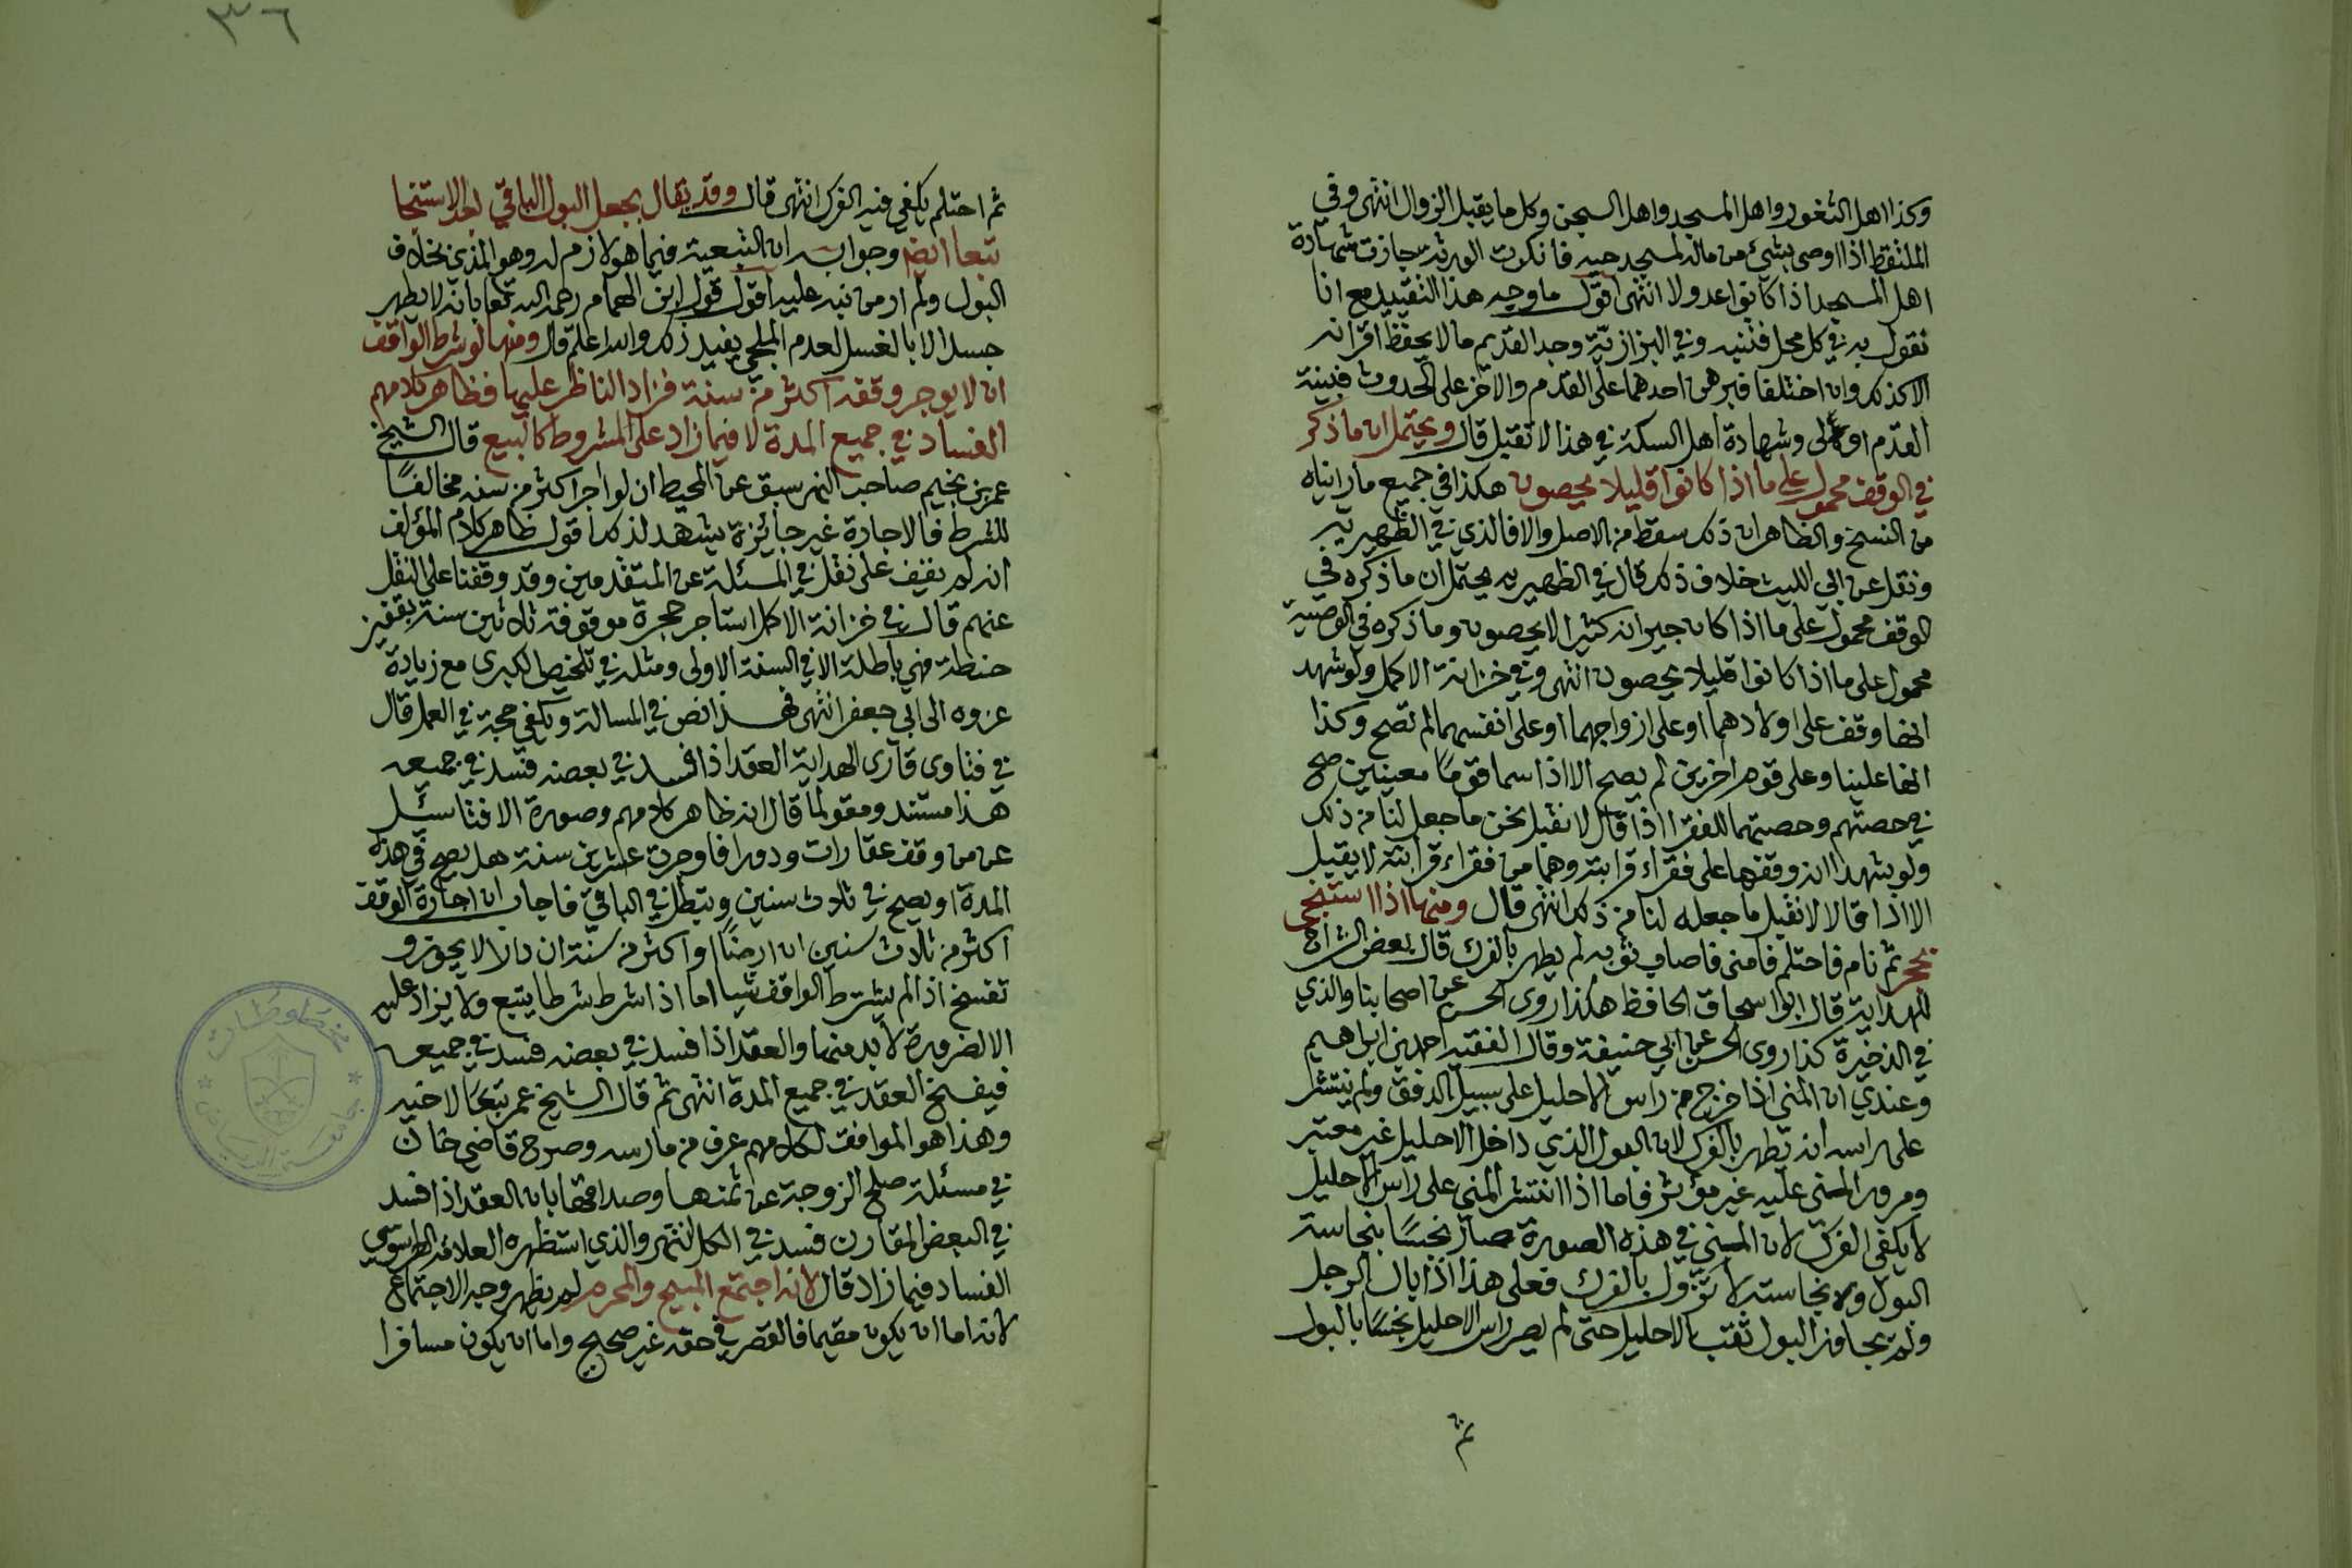 وكذا اهل الثغور واهل المسجد واهل السجن وكل ما يقبل الزوال انتهى وفي
الملتقط اذا اوصى بشئ من ماله لمسجد حيه فانكرت الورثة جازت شهادة
اهل المسجد اذا كانوا عدولا انتهى اقول ما وجه هذا التقييد مع انا
نقول به في كل محل فتنبه وفي البزازية وجد القديم ما لا يحفظ اقرانه
الا كذلك وان اختلفا فبرهن احدهما على القدم والاخر على الحدوث فبينة
القدم اولى وشهادة اهل السكة في هذا لا تقبل قال ويحتمل ان ما ذكر
في الوقف محمول على ما اذا كانوا قليلا يحصون هكذا في جميع ما رايناه
من النسخ والظاهر ان ذلك سقط من الاصل والا فالذي في الظهيرية
ونقل عن ابي الليث خلاف ذلك قال في الظهيرية يحتمل ان ما ذكره في
الوقف محمول على ما اذا كان جيرانه كثيرا لا يحصون وما ذكره في الوصية
محمول على ما اذا كانوا قليلا يحصون انتهى وفي خزانة الاكمل ولو شهد
انها وقف على اولادهما او على ازواجهما او على انفسهما لم تصح وكذا
انها علينا وعلى قوم اخرين لم يصح الا اذا سما قوما معينين صح
في حصتهم وحصتهما للفقرا اذا قال لا نقبل نحن ما جعل لنا من ذلك
ولو شهدا انه وقفها على فقراء قرابته وهما من فقراء قرابته لا يقبل
الا اذا قالا لا نقبل ما جعله لنا من ذلك انتهى قال ومنها اذا استنجى
بحجر ثم نام فاحتلم فامنى فاصاب ثوبه لم يطهر بالفرك قال بعض الشراح
للهداية قال ابو اسحاق الحافظ هكذا روى الحسن عن اصحابنا والذي
في الذخيرة كذا روى الحسن عن ابي حنيفة وقال الفقيه احمد بن ابراهيم
وعندي ان المنى اذا خرج من راس الاحليل على سبيل الدفق ولم ينتشر
على راسه انه يطهر بالفرك لان البول الذي داخل الاحليل غير معتبر
ومرور المنى عليه غير مؤثر فاما اذا انتشر المني على راس الاحليل
لا يكفي الفرك لان المني في هذه الصورة صار نجسًا بنجاسة
البول ولان نجاسته لا تزول بالفرك فعلى هذا اذا بال الرجل
ولم يجاوز البول ثقب الاحليل حتى لم يصر راس الاحليل نجسًا بالبول
ثم
٣٦
ثم احتلم يكفي فيه الفرك انتهى قال وقد يقال بجعل البول الباقي بعد الاستنجا
تبعا ايضا وجوابه ان التبعية فيما هو لازم له وهو المذي بخلاف
البول ولم ار من نبه عليه اقول قول ابن الهمام رحمه الله تعا بانه لا يطهر
جسده الا بالغسل لعدم الملجي يفيد ذلك والله اعلم قال ومنها لو شرط الواقف
ان لا يوجر وقفه اكثر من سنة فزاد الناظر عليها فظاهر كلامهم
الفساد في جميع المدة لا فيما زاد على المشروط كالبيع قال الشيخ
عمر بن نجيم صاحب النهر سبق عن المحيط ان لو اجر اكثر من سنه مخالفًا
للشرط فالاجارة غير جائزة يشهد لذلك اقول ظاهر كلام المؤلف
انه لم يقف على نقل في المسئلة عن المتقدمين وقد وقفنا على النقل
عنهم قال في خزانة الاكمل استاجر حجرة موقوفة ثلاثين سنة بقفيز
حنطة فهي باطلة الا في السنة الاولى ومثله في تلخيص الكبرى مع زيادة
عزوه الى ابي جعفر انتهى فهذا نص في المسالة ويكفي حجة في العمل قال
في فتاوى قارى الهداية العقد اذا فسد في بعضه فسد في جميعه
هذا مستند ومقولما قال انه ظاهر كلامهم وصورة الافتا سئل
عن من وقف عقارات ودورا فاوجرت عشرين سنة هل يصح في هذه
المدة او يصح في ثلاث سنين ويبطل في الباقي فاجاب ان اجارة الوقف
اكثر من ثلاث سنين ان ارضًا او اكثر من سنة ان دارا لا يجوز و
تفسخ اذا لم يشترط الواقف شيا اما اذا شرط شرطا يتبع ولا يزاد عليه
الا لضرورة لا بد منها والعقد اذا فسد في بعضه فسد في جميعه
فيفسخ العقد في جميع المدة انتهى ثم قال الشيخ عمر تبعًا لاخيه
وهذا هو الموافق لكلامهم عرف من مارسه وصرح قاضي خان
في مسئلة صلح الزوجة عن ثمنها وصداقها بان العقد اذا فسد
في البعض المقارن فسد في الكل انتهى والذي استظهره العلامة الطرسوسي
الفساد فيما زاد قال لانه اجتمع المبيح والمحرم لم يظهر وجه الاجتماع
لانه اما ان يكون مقيما فالقصر في حقه غير صحيح واما ان يكون مسافرا
مخطوطات
جامعة الرياض